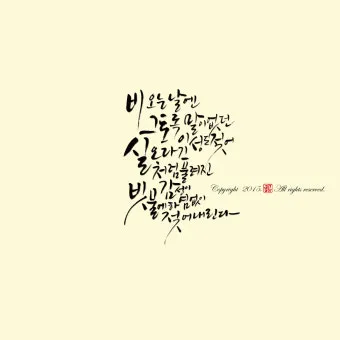 비 오는 날엔
그토록 말이 없던
이성도 젖어
실오라기
처럼 풀려진
감성이
빗물에 하염없이
젖어 내린다
Copyright 2015. All rights reserved.